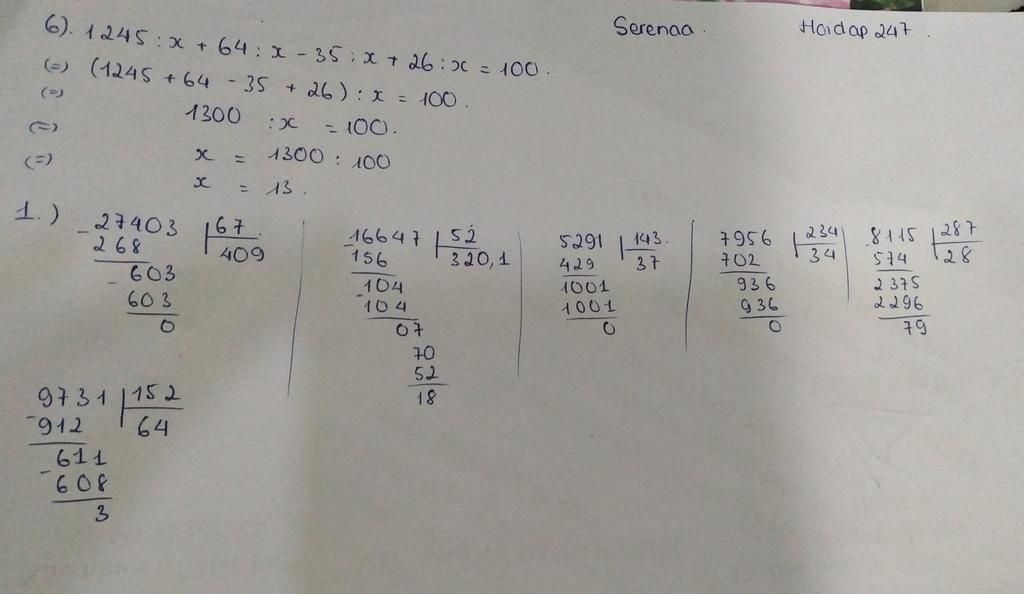 Serenaa. Hoidap247.
6). 1245 : x + 64 : x - 35 : x + 26 : x = 100.
(=) (1245 + 64 - 35 + 26) : x = 100.
(=) 1300 : x = 100.
(=) x = 1300 : 100
(=) x = 13.
1.)
- 27403 | 67
268 409
- 603
603
0
- 16647 | 52
156 320,1
104
- 104
07
70
52
18
5291 | 143.
429 37
1001
1001
0
7956 | 234
702 34
936
936
0
- 8115 | 287
574 28
2375
2296
79
9731 | 152
- 912 64
611
- 608
3